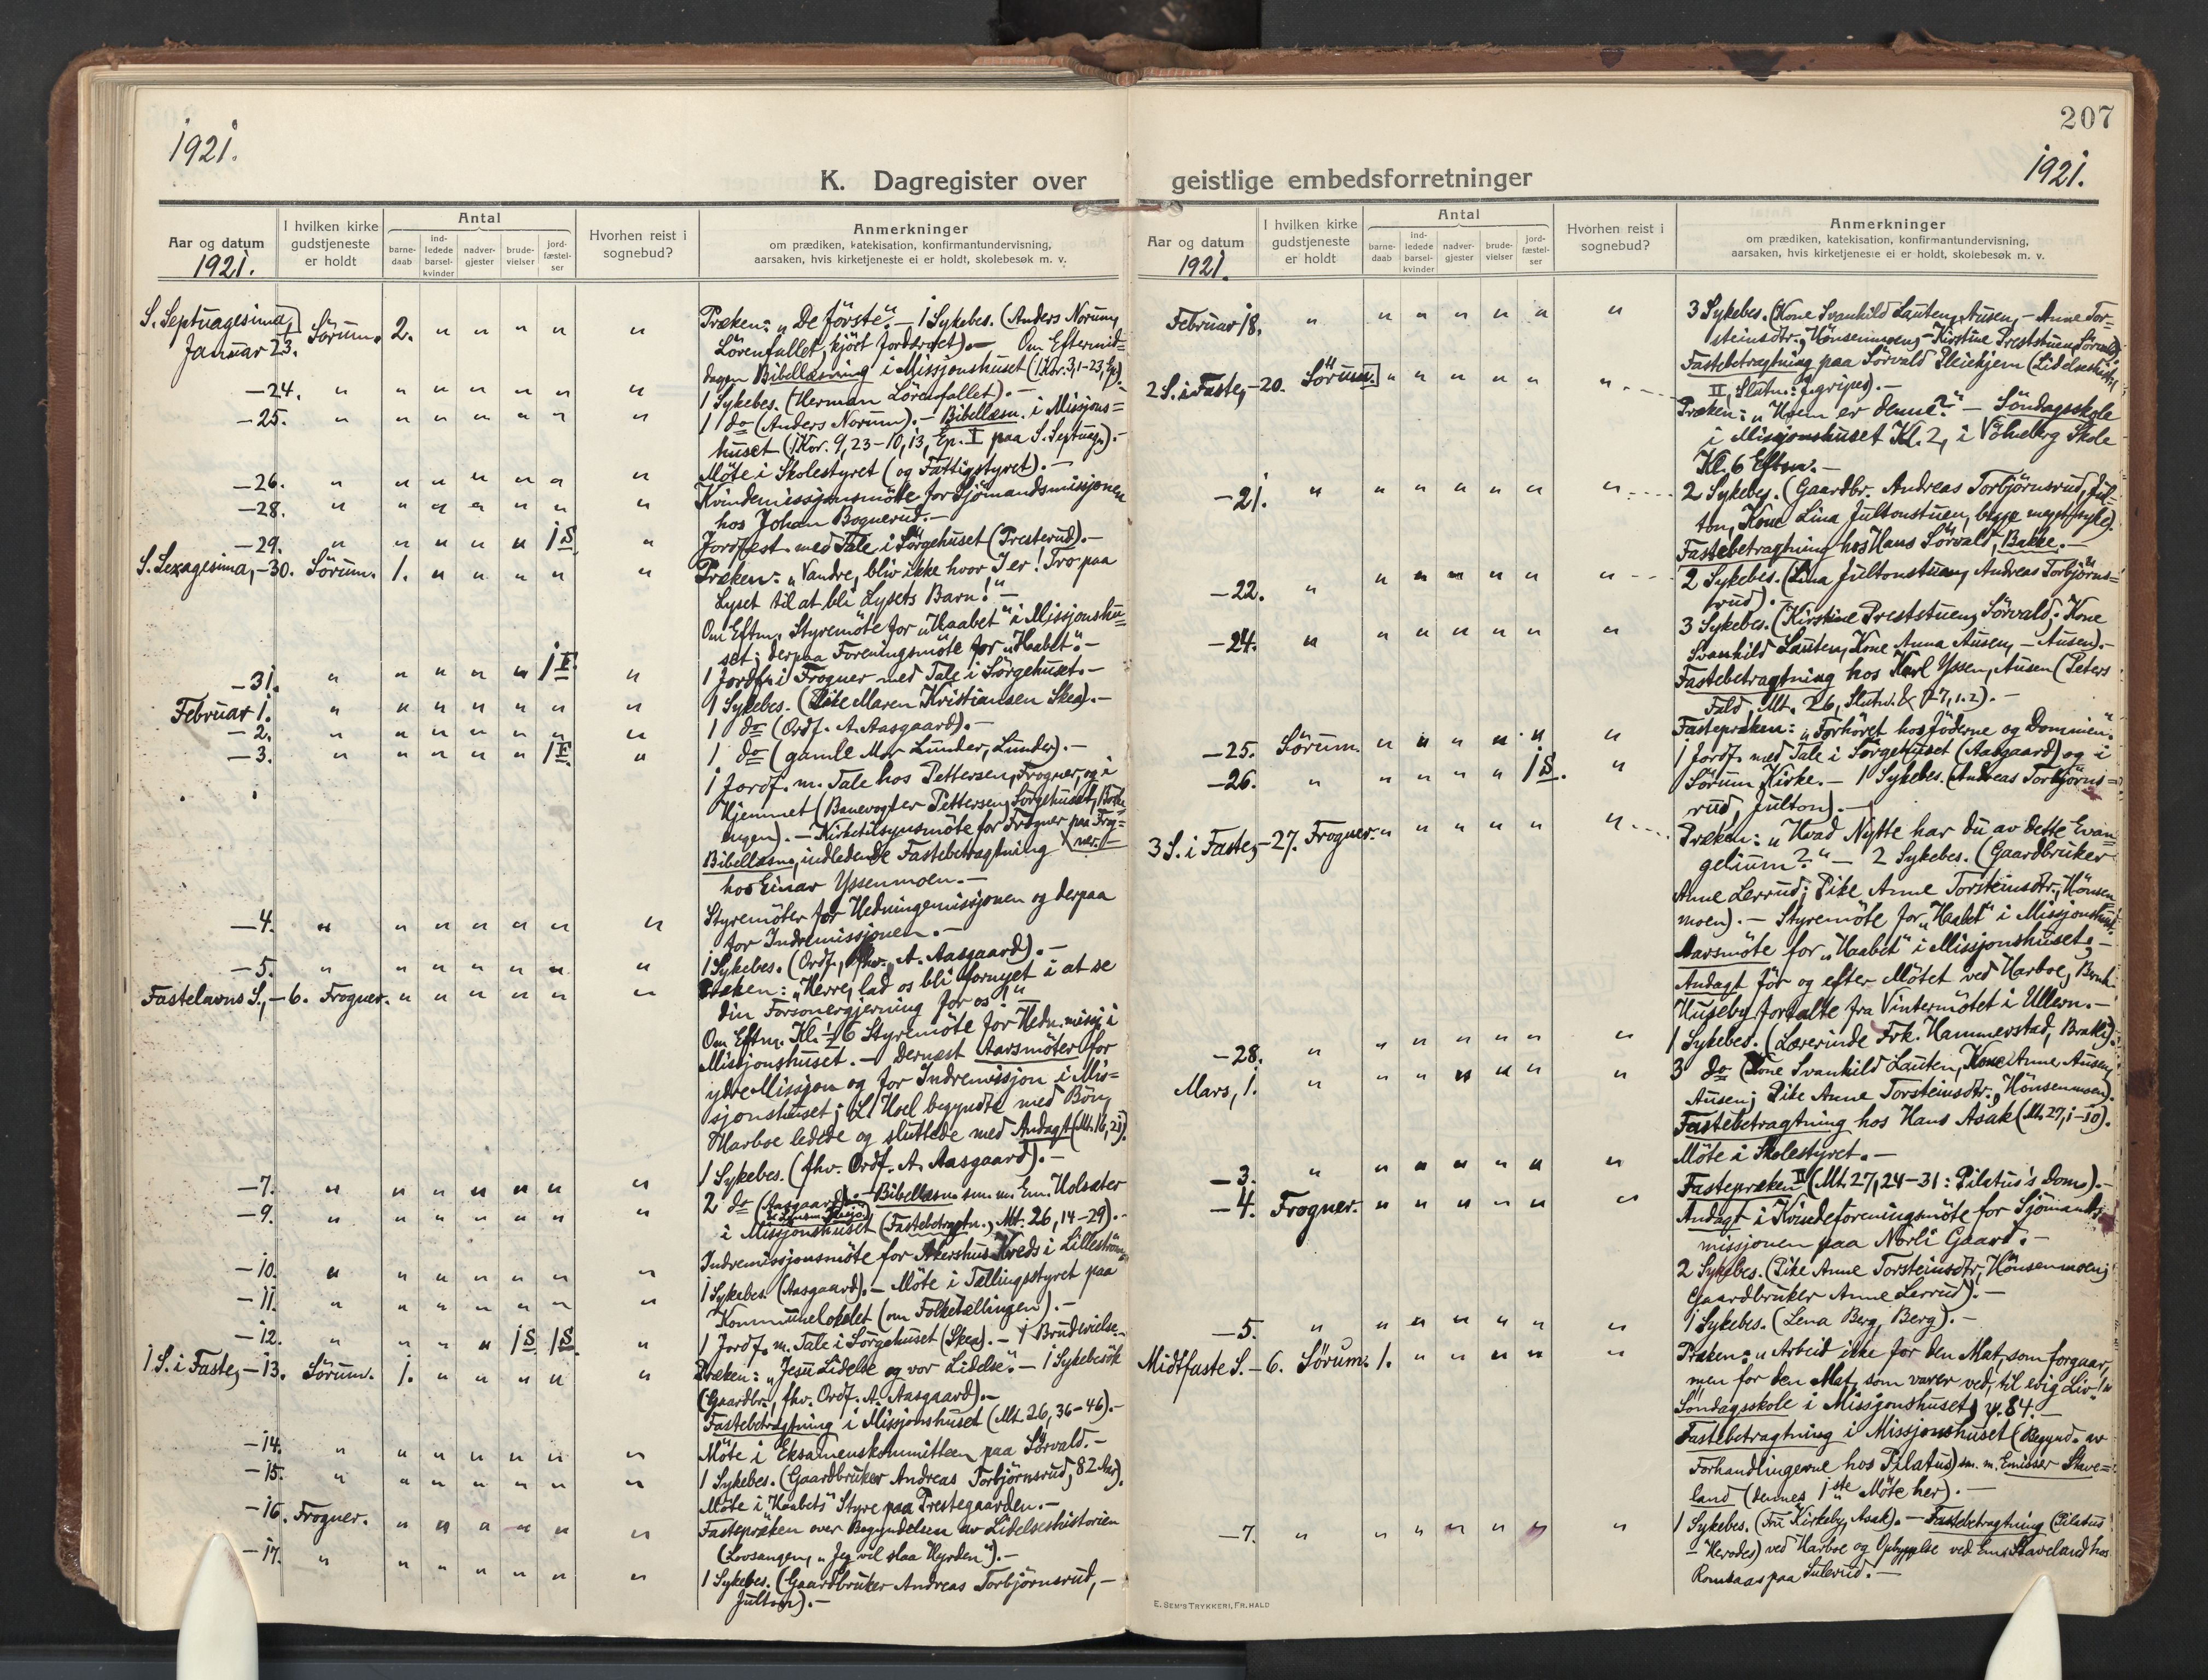 1921.
K. Dagregister over
Aar og datum
1921.
I hvilken kirke
gudstjeneste
er holdt
Antal
barne-
daab
ind-
ledede
barsel-
kvinder
nadver-
gjester
brude-
vielser
jord-
fæstel-
ser
Hvorhen reist i
sognebud?
Anmerkninger
om prædiken, katekisation, konfirmantundervisning,
aarsaken, hvis kirketjeneste ei er holdt, skolebesøk m. v.
S. Septuagesima,
Januar 23. Sörum. 2. " " " " " Præken: „De förste“. – 1 Sykebes. (Anders Norum,
Lörenfallet, kjört fordærvet). – Om Eftermid=
dagen Bibellæsning i Missjonshuset (1 Kor. 3, 1–23, Ep.)
–24. " " " " " " " 1 Sykebes. (Herman Lörenfallet). –
–25. " " " " " " " 1 do (Anders Norum). – Bibellæsn. i Missjons=
huset (1 Kor. 9, 23–10, 13, Ep. I paa S. Septuag.). –
–26. " " " " " " " Möte i Skolestyret (og Fattigstyret). –
–28. " " " " " " " Kvindemissjonsmöte for Sjömandsmissjonen
hos Johan Bognerud. –
–29. " " " " " 1 S. " Jordfest. med Tale i Sörgehuset (Presterud). –
S. Sexagesima, –30. Sörum. 1. " " " " " Præken: „Vandre, bliv ikke hvor I er! Tro paa
Lyset til at bli Lysets Barn!“ –
Om Eftm. Styremöte for „Haabet“ i Missjonshu=
set; derpaa Foreningsmöte for „Haabet“. –
–31. " " " " " 1 F. " 1 Jordf. i Frogner med Tale i Sörgehuset. –
Februar 1. " " " " " " " 1 Sykebes. (Pike Maren Kristiansen Skea). –
–2. " " " " " " " 1 do (Ordf. A. Aasgaard). –
–3. " " " " " 1 F. " 1 do (gamle Mor Lunder, Lunder). –
1 Jordf. m. Tale hos Pettersen, Frogner, og i
Hjemmet (Banevogter Pettersen, Sörgehuset,
– Kirketilsynsmöte for Frogner paa Frog=
ner. –
Bibellæsn., indledende Fastebetragtning
hos Einar Yssenmoen. –
–4. " " " " " " " Styremöter for Hedningemissjonen og derpaa
for Indremissjonen. –
–5. " " " " " " " 1 Sykebes. (Ordf., fhv., A. Aasgaard). –
Fastelavns S., –6. Frogner. " " " " " " Præken: „Herre, lad os bli fornyet i at se
din Forsonergjerning for os!“ –
Om Eftm. Kl. ½6 Styremöte for Hedn.missj. i
Missjonshuset. – Dernæst Aarsmöter for
ydre Missjon og for Indremissjon i Mis=
sjonshuset; L. Hoel begyndte med Bön,
Harboe ledede og sluttede med Andagt (Mt. 16, 21).
–7. " " " " " " " 1 Sykebes. (fhv. Ordf. A. Aasgaard). –
–9. " " " " " " " 2 do (Aasgaard . – Bibellæsn. sm. m. Em. Holsæter
i Missjonshuset (Fastebetragtn., Mt. 26, 14–29). –
Indremissjonsmöte for Akershus Kreds i Lilleström
–10. " " " " " " " 1 Sykebes. (Aasgaard). – Möte i Tællingsstyret paa
–11. " " " " " " " Kommunelokalet (om Folketællingen). –
–12. " " " " 1 S. 1 S. " 1 Jordf. m. Tale i Sörgehuset (Skea). – 1 Brudevielse. –
1 S. i Faste, –13. Sörum. 1. " " " " " Præken: „Jesu Lidelse og vor Lidelse“. – 1 Sykebesök
(Gaardbr., fhv. Ordf. A. Aasgaard). –
Fastebetragtning i Missjonshuset (Mt. 26, 36–46). –
–14. " " " " " " " Möte i Eksamenskommitteen paa Sörvald. –
–15. " " " " " " " 1 Sykebes. (Gaardbruker Andreas Torbjörnsrud, 82 Aar).
Möte i „Haabets“ Styre paa Prestegaarden. –
–16. Frogner. " " " " " " Fastepræken over Begyndelsen av Lidelseshistorien
(Lovsangen, „Jeg vil slaa Hyrden“). –
–17. " " " " " " " 1 Sykebes. (Gaardbruker Andreas Torbjörnsrud, –
Jultom). –
207
1921.
geistlige embedsforretninger
Aar og datum
1921.
I hvilken kirke
gudstjeneste
er holdt
Antal
barne-
daab
ind-
ledede
barsel-
kvinder
nadver-
gjester
brude-
vielser
jord-
fæstel-
ser
Hvorhen reist i
sognebud?
Anmerkninger
om prædiken, katekisation, konfirmantundervisning,
aarsaken, hvis kirketjeneste ei er holdt, skolebesøk m. v.
Februar 18. " " " " " " " 3 Sykebes. (Kone Svanhild Lauten, Ausen, – Anne Tor=
steinsdtr., Hönsenmoen, – Kirstine Preststuen, Sörvald).
Fastebetragtning paa Sörvald Pleiehjem (Lidelseshist.
II, Slutn.: gripes). –
2 S. i Faste, –20. Sörum. " " " " " " Præken: „Hvem er denne?“ – Söndagsskole
i Missjonshuset Kl. 2, i Völneberg Skole
Kl. 6 Eftm. –
–21. " " " " " " " 2 Sykebes. (Gaardbr. Andreas Torbjörnsrud, Jul=
ton, Kone Lina Jultonstuen, begge meget syke).
Fastebetragtning hos Hans Sörvald, Bakke. –
–22. " " " " " " " 2 Sykebes. (Lina Jultonstuen, Andreas Torbjörns=
rud). –
–24. " " " " " " " 3 Sykebes. (Kirstine Preststuen, Sörvald; Kone
Svanhild Lauten, Kone Anna Ausen, – Ausen). –
Fastebetragtning hos Karl Yssen, Ausen (Peters
Fald, Mt. 26, Slutn. & 27, 1.2). –
–25. Sörum. " " " " " " Fastepræken: „Forhöret hos Jöderne og Dommen“.
–26. " " " " " 1 S. " 1 Jordf. med Tale i Sörgehuset (Aasgaard) og i
Sörum Kirke. – 1 Sykebes. (Andreas Torbjörns=
rud, Julton). –
3 S. i Faste, –27. Frogner. " " " " " " Præken: „Hvad Nytte har du av dette Evan=
gelium?“ – 2 Sykebes. (Gaardbruker
Anne Lerrud; Pike Anne Torsteinsdtr., Hönsen=
moen). – Styremöte for „Haabet“ i Missjonshuset.
Aarsmöte for „Haabet“ i Missjonshuset, –
Andagt för og efter Mötet ved Harboe,
Huseby fortalte fra Vintermötet i Ullern. –
–28. " " " " " " " 1 Sykebes. (Lærerinde Frk. Hammerstad, ).
Mars, 1. " " " " " " " 3 do (Kone Svanhild Lauten, Kone Anne Ausen,
Ausen; Pike Anne Torsteinsdtr., Hönsenmoen).
Fastebetragtning hos Hans Asak (Mt. 27, 1–10).
–3. " " " " " " " Möte i Skolestyret. –
–4. Frogner. " " " " " " Fastepræken IV (Mt. 27, 24–31: Pilatus's Dom). –
Andagt i Kvindeforeningsmöte for Sjömands=
missjonen paa Norli Gaard. –
2 Sykebes. (Pike Anne Torsteinsdtr., Hönsenmoen;
Gaardbruker Anne Lerrud). –
–5. " " " " " " " 1 Sykebes. (Lena Berg, Berg). –
Midtfaste S. –6. Sörum. 1. " " " " " Præken: „Arbeid ikke for den Mat, som forgaar,
men for den Mat, som varer ved, til evig Liv!“
Söndagsskole i Missjonshuset, ψ. 84. –
Fastebetragtning i Missjonshuset (Begynd. av
Forhandlingerne hos Pilatus) sm. m. Emissær Stave=
land (dennes 1ste Möte her). –
–7. " " " " " " " 1 Sykebes. (Fru Kirkeby, Asak). – Fastebetragtning (Pilatus
– Herodes) ved Harboe og Opbyggelse ved Em. Staveland hos
Romsaas paa Sulerud. –
E. SEM'S TRYKKERI, FR. HALD